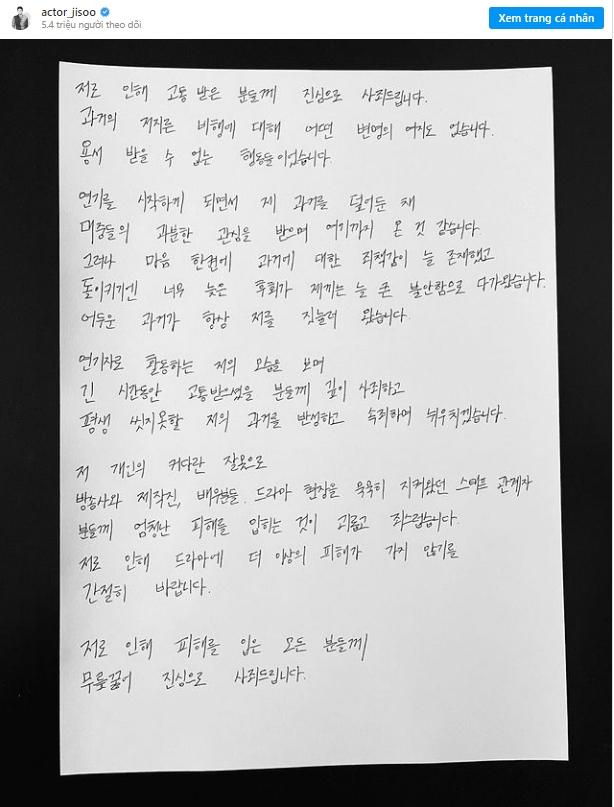 actor_jisoo
5.4 triệu người theo dõi
Xem trang cá nhân
저로 인해 고통 받은 분들께 진심으로 사죄드립니다.
과거의 저지른 비행에 대해 어떤 변명의 여지도 없습니다.
용서 받을 수 없는 행동들이었습니다.
연기를 시작하게 되면서 제 과거를 덮어둔 채
대중들의 과분한 관심을 받으며 여기까지 온 것 같습니다.
그러나 마음 한편에 과거에 대한 죄책감이 늘 존재했고
돌이키기엔 너무 늦은 후회가 제게는 늘 큰 불안함으로 다가왔습니다.
어두운 과거가 항상 저를 짓눌러 왔습니다.
연기자로 활동하는 저의 모습을 보며
긴 시간동안 고통받으셨을 분들께 깊이 사죄하고
평생 씻지못할 저의 과거를 반성하고 속죄하며 뉘우치겠습니다.
저 개인의 커다란 잘못으로
방송사와 제작진, 배우분들, 드라마 현장을 묵묵히 지켜왔던 스태프 관계자
분들께 엄청난 피해를 입히는 것이 괴롭고 죄스럽습니다.
저로 인해 드라마에 더 이상의 피해가 가지 않기를
간절히 바랍니다.
저로 인해 피해를 입은 모든 분들께
무릎꿇어 진심으로 사죄드립니다.